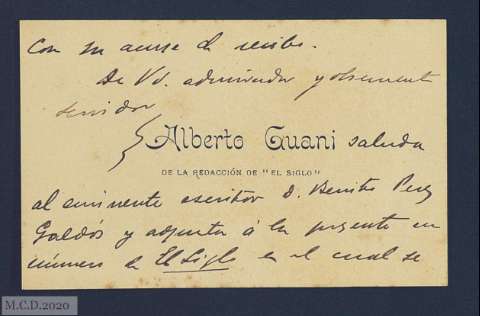 Con su acuse de recibo.
De Vd. admirador y obsecuente
servidor
Alberto Guani saluda
DE LA REDACCIÓN DE "EL SIGLO"
al eminente escritor D. Benito Perez
Galdós y adjunta á la presente un
número de El Siglo en el cual se
M.C.D.2020